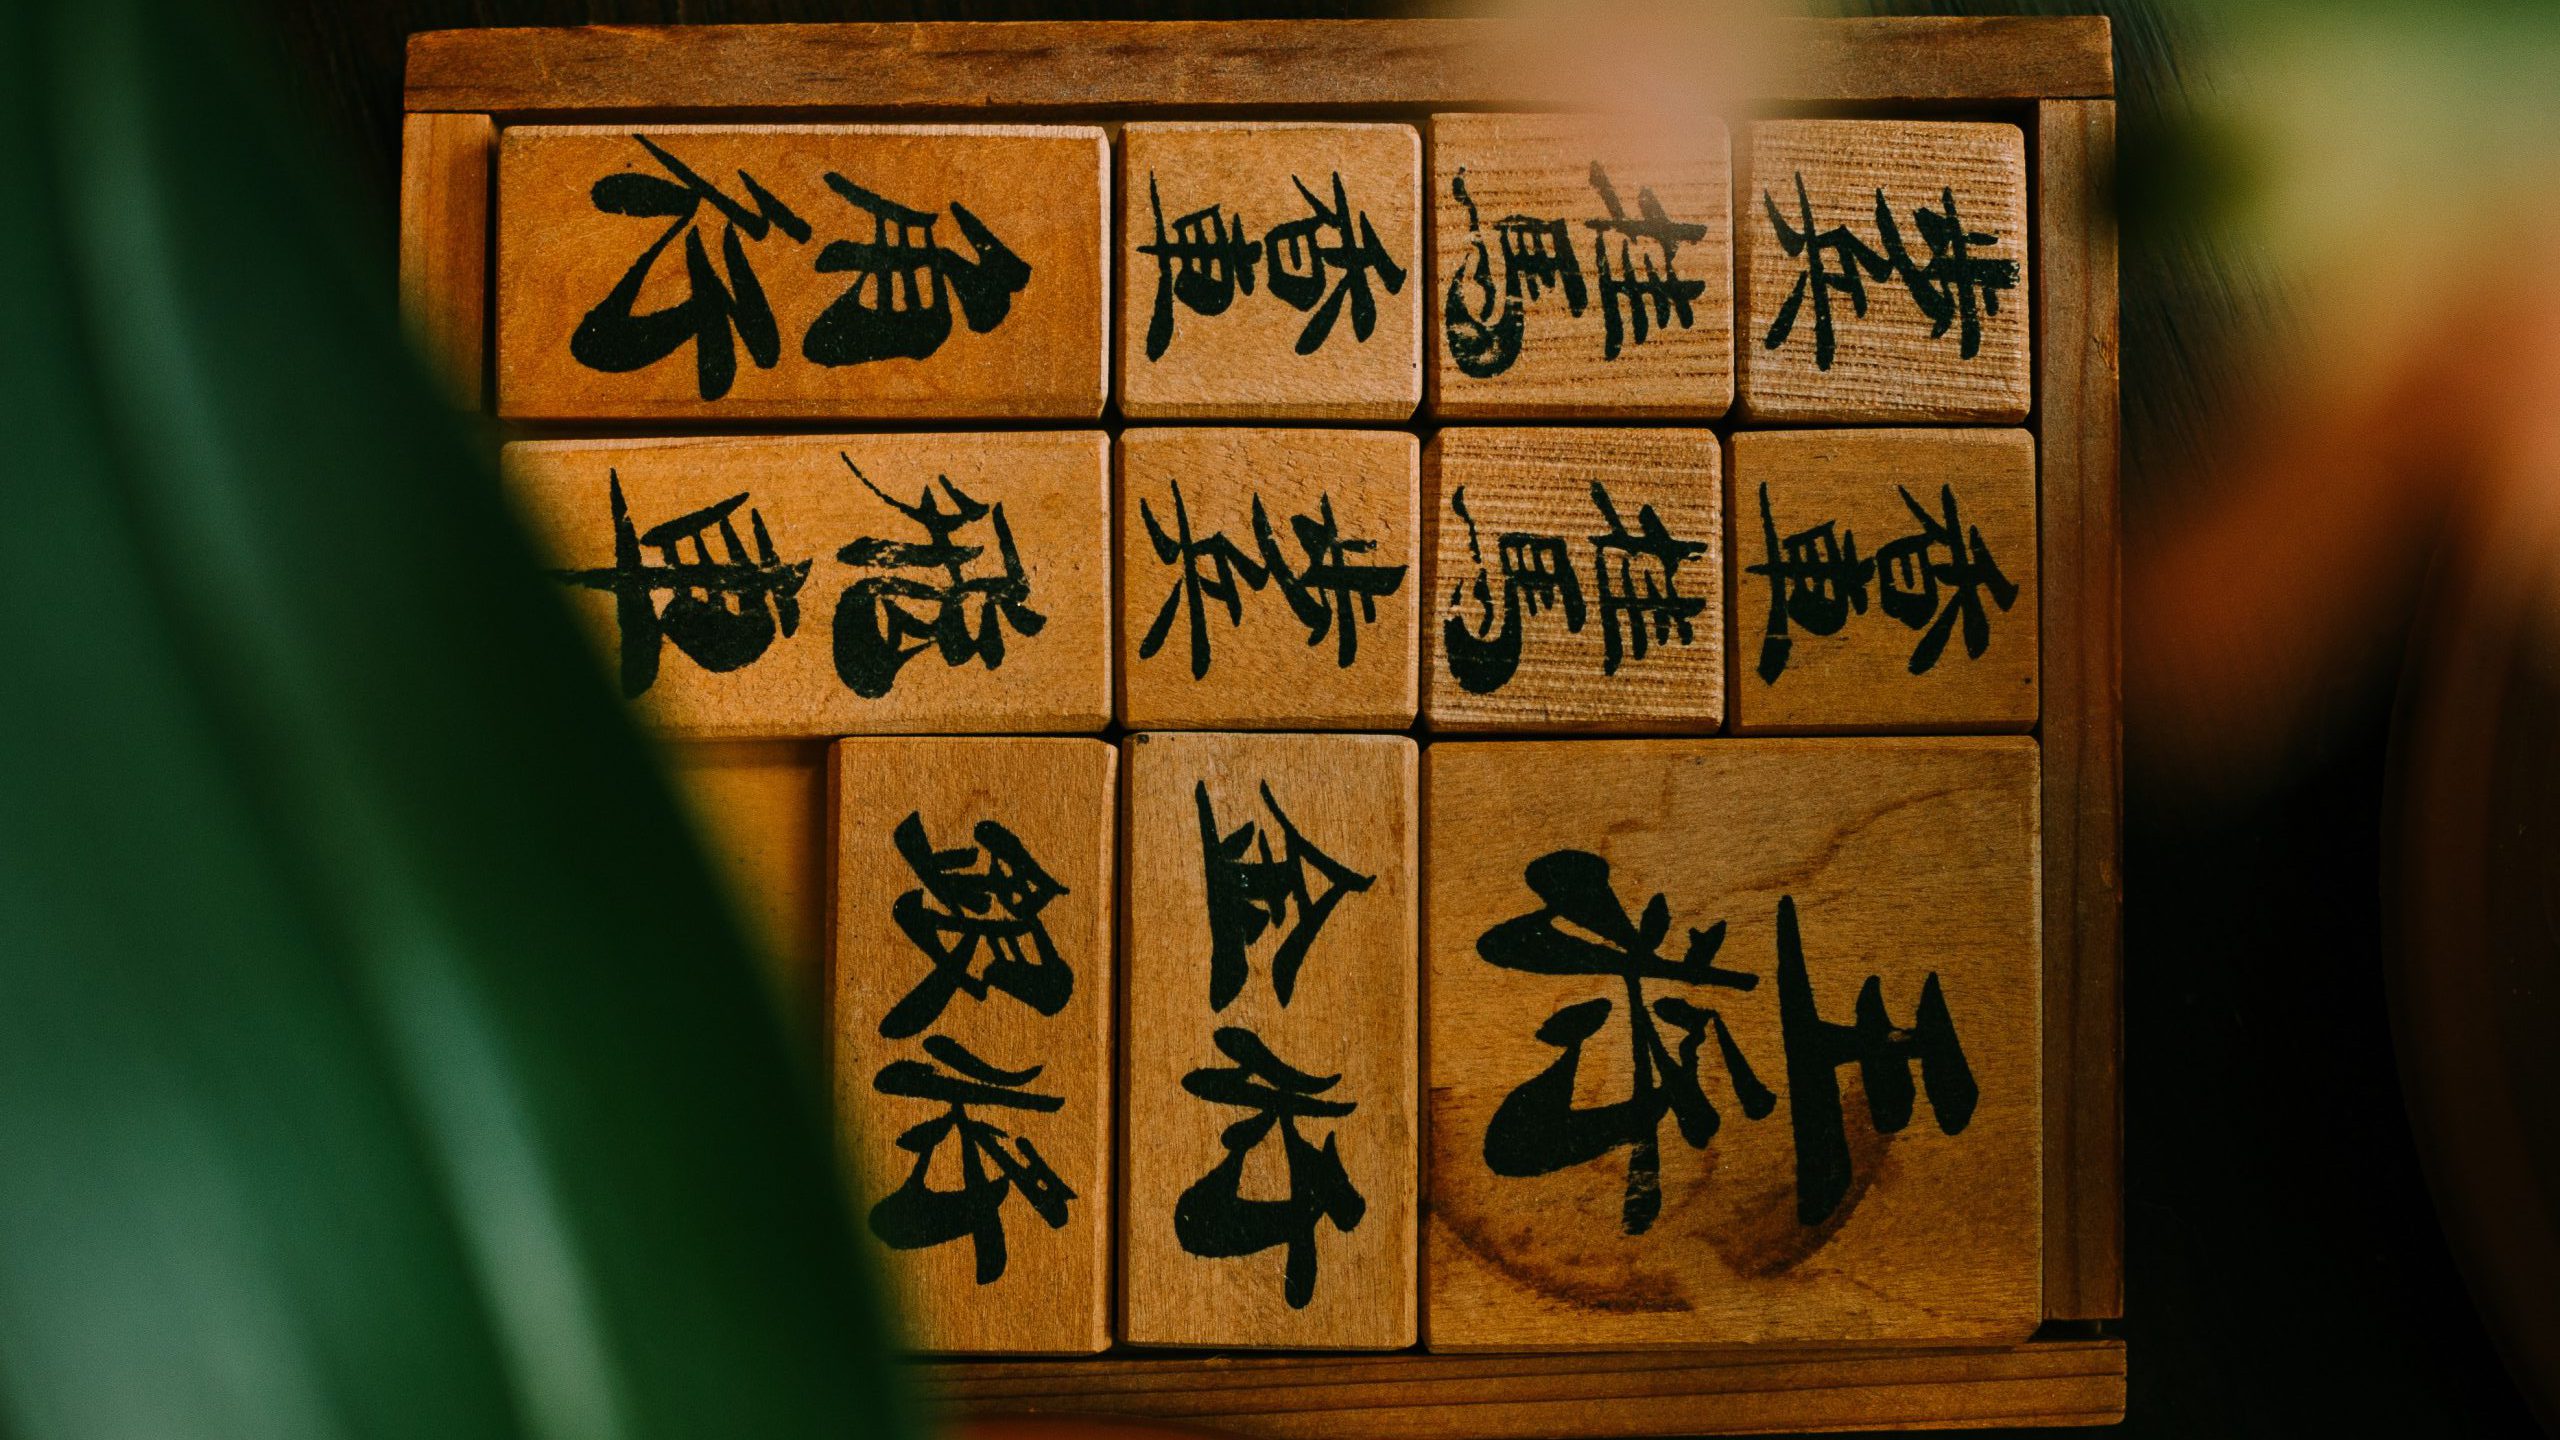 歩兵
香車
王将
桂馬
桂馬
香車
歩兵
金将
角行
飛車
銀将